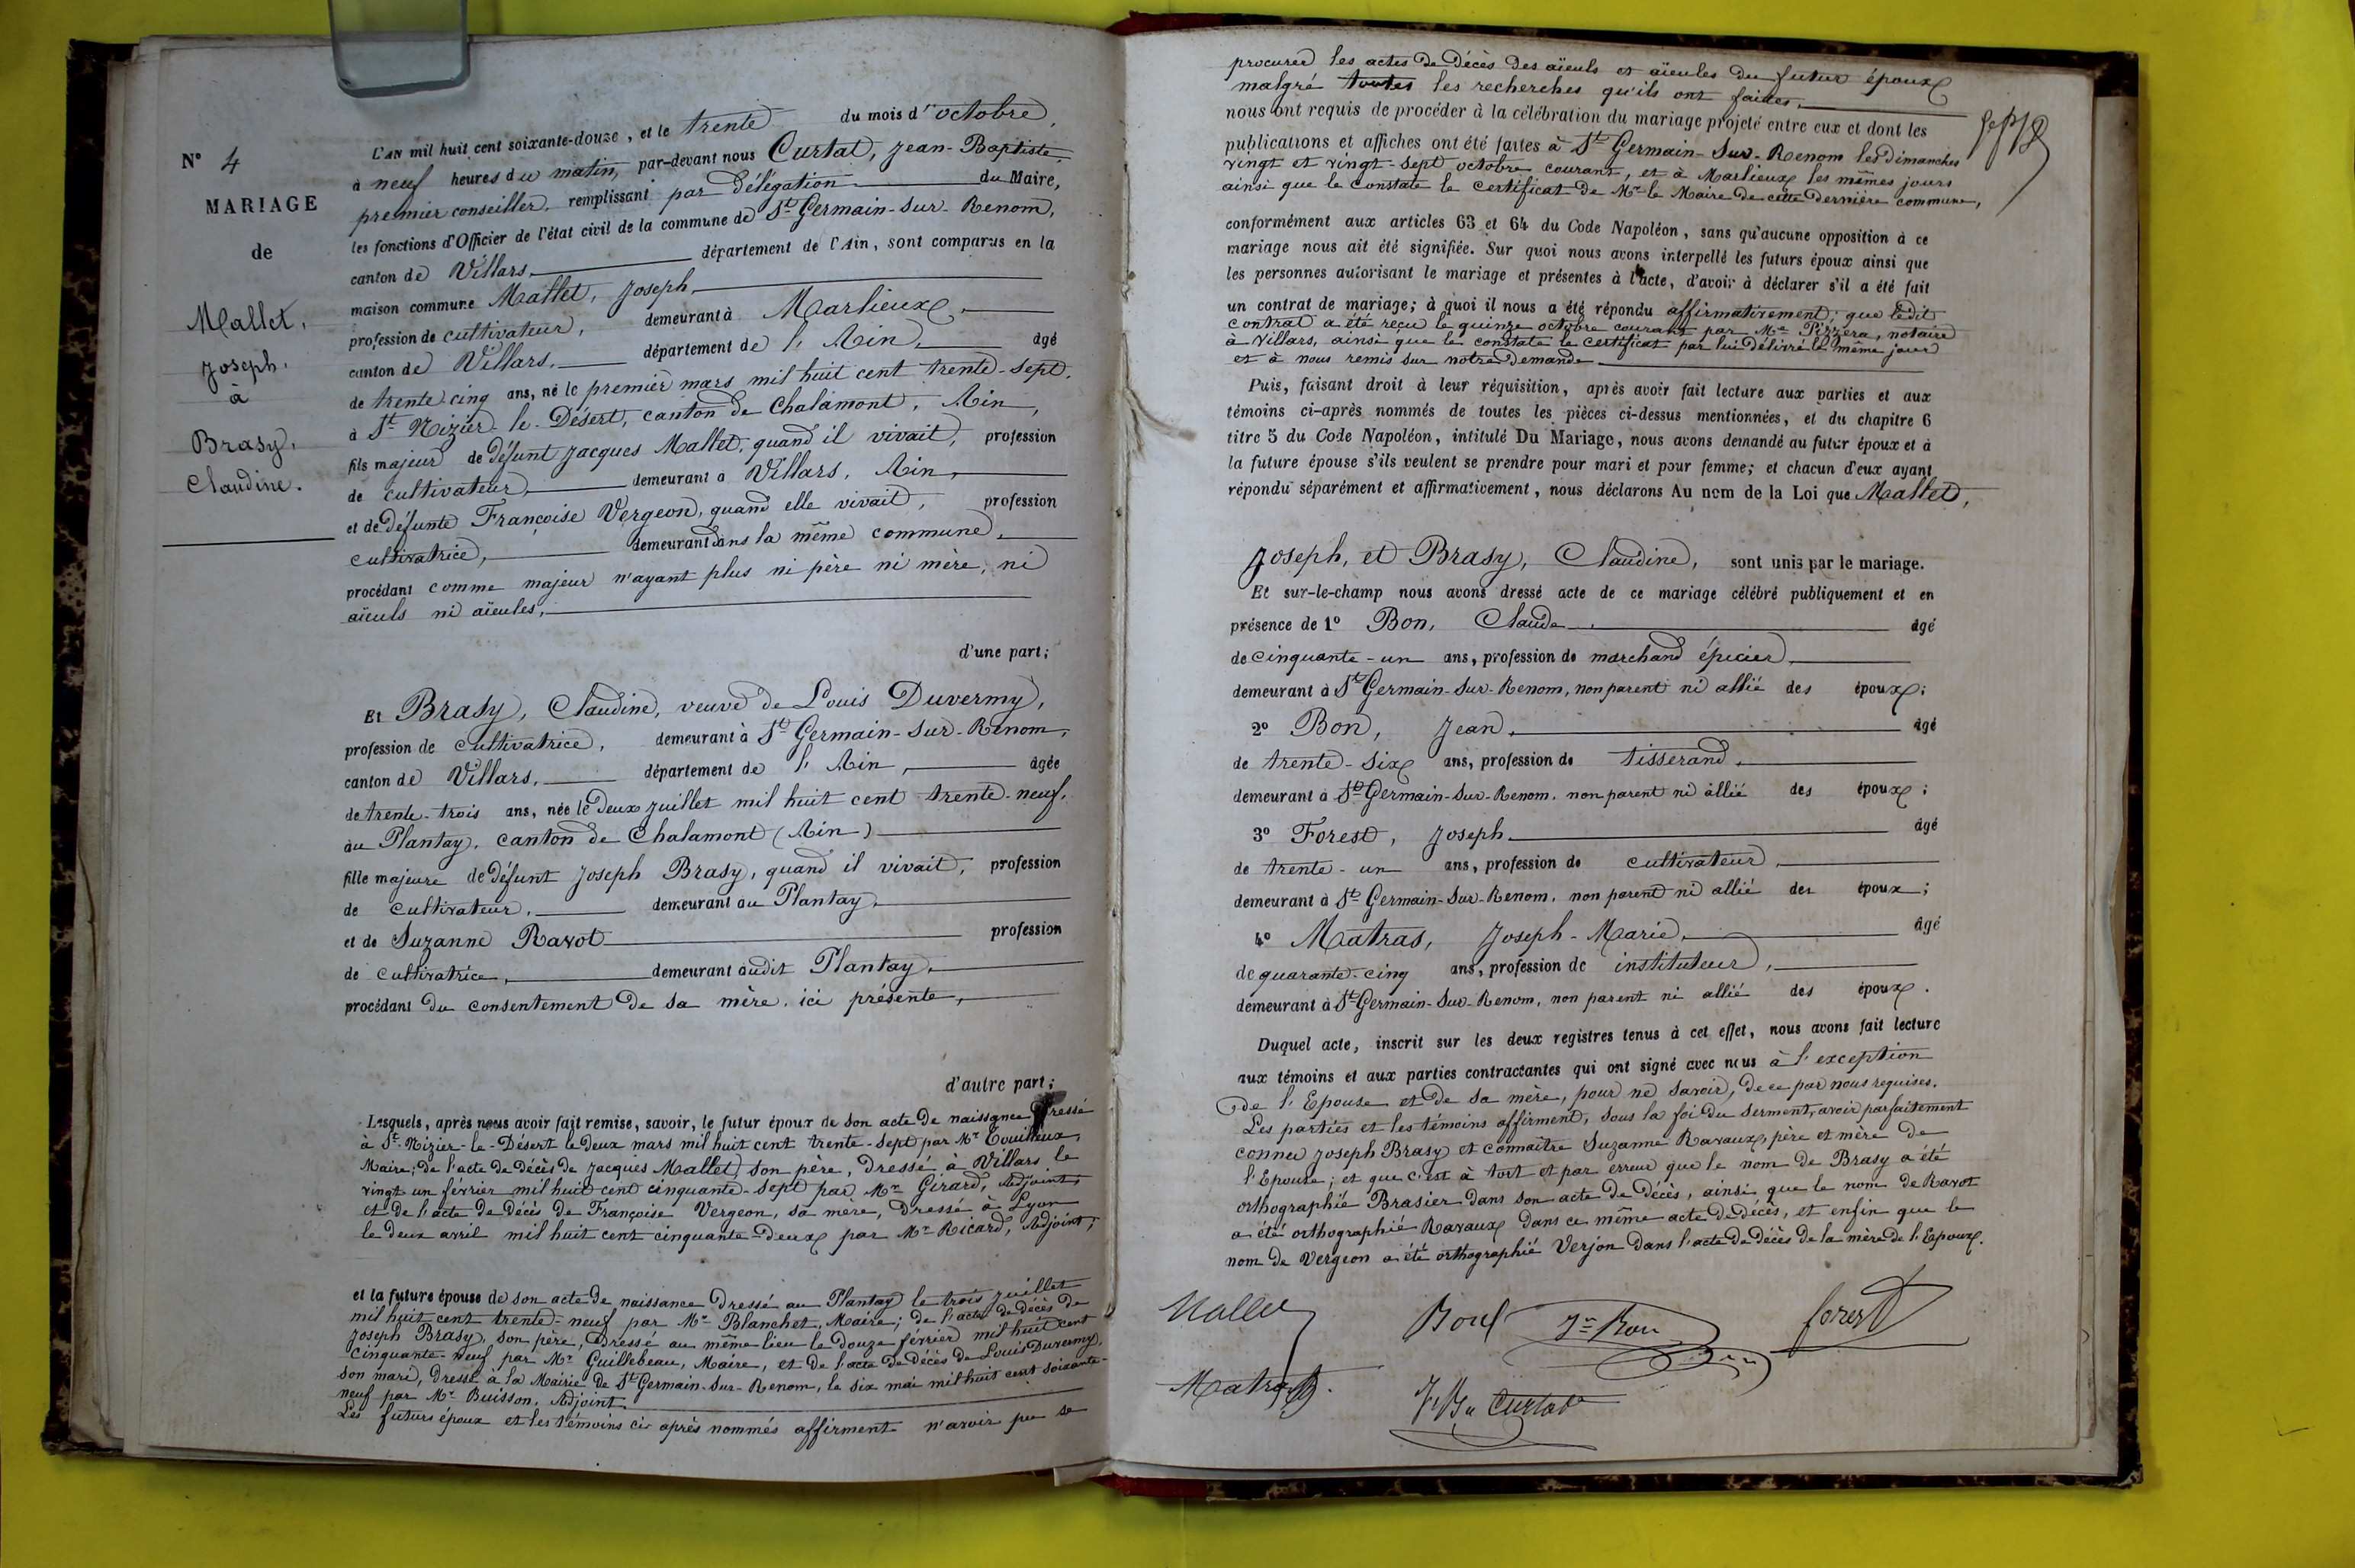 N° 4
MARIAGE
de
Mallet,
Joseph.
à
Brasy,
Claudine.
L'AN mil huit cent soixante-douze, et le trente du mois d'octobre,
à neuf heures du matin, par-devant nous Curtat, Jean-Baptiste,
premier conseiller, remplissant par délégation du Maire,
les fonctions d'Officier de l'état civil de la commune de St Germain-Sur-Renom,
canton de Villars, département de l'Ain, sont comparus en la
maison commune Mallet, Joseph,
profession de cultivateur, demeurant à Marlieux,
canton de Villars, département de l'Ain, âgé
de trente-cinq ans, né le premier mars mil huit cent trente-sept,
à St Nizier-le-Désert, canton de Chalamont, Ain,
fils majeur de défunt Jacques Mallet, quand il vivait, profession
de cultivateur, demeurant a Villars, Ain,
et de défunte Françoise Vergeon, quand elle vivait, profession
cultivatrice, demeurant dans la même commune,
procédant comme majeur n'ayant plus ni père ni mère, ni
aïeuls ni aïeules,
d'une part;
Et Brasy, Claudine, veuve de Louis Duvermy,
profession de cultivatrice, demeurant à St Germain-Sur-Renom,
canton de Villars, département de l'Ain, âgée
de trente-trois ans, née le deux juillet mil huit cent trente-neuf,
au Plantay, canton de Chalamont (Ain)
fille majeure de défunt Joseph Brasy, quand il vivait, profession
de cultivateur, demeurant au Plantay,
et de Suzanne Ravot profession
de cultivatrice, demeurant audit Plantay,
procédant du consentement de sa mère, ici présente,
d'autre part;
Lesquels, après nous avoir fait remise, savoir, le futur époux de son acte de naissance dressé
à St-Nizier-le-Désert le deux mars mil huit cent trente-sept par Mr
Maire; de l'acte de décès de Jacques Mallet, son père, dressé à Villars le
vingt un février mil huit cent cinquante-sept par Mr Girard, Adjoint,
et de l'acte de décès de Françoise Vergeon, sa mère, dressé à Lyon
le deux avril mil huit cent cinquante-deux par Mr Ricard, Adjoint,
et la future épouse de son acte de naissance dressé au Plantay le trois juillet
mil huit cent trente-neuf par Mr Blanchet, Maire; de l'acte de décès de
Joseph Brasy, son père, dressé au même lieu le douze février mil huit cent
cinquante-neuf par Mr Guillebeau, Maire, et de l'acte de décès de Louis Duvermy,
son mari, dressé à la Mairie de St Germain-Sur-Renom, le six mai mil huit cent soixante-
neuf par Mr Buisson, Adjoint.
Les futurs époux et les témoins ci-après nommés affirment n'avoir pu se
procurer les actes de décès des aïeuls et aïeules du futur époux
malgré toutes les recherches qu'ils ont faites,
nous ont requis de procéder à la célébration du mariage projeté entre eux et dont les
publications et affiches ont été faites à St Germain-Sur-Renom les dimanches
vingt et vingt-sept octobre courant, et à Marlieux les mêmes jours
ainsi que le constate le certificat de Mr le Maire de cette dernière commune,
conformément aux articles 63 et 64 du Code Napoléon, sans qu'aucune opposition à ce
mariage nous ait été signifiée. Sur quoi nous avons interpellé les futurs époux ainsi que
les personnes autorisant le mariage et présentes à l'acte, d'avoir à déclarer s'il a été fait
un contrat de mariage; à quoi il nous a été répondu affirmativement; que ledit
contrat a été reçu le quinze octobre courant par Me Pizzera, notaire
à Villars, ainsi que le constate le certificat par lui délivré le même jour
et à nous remis sur notre demande
Puis, faisant droit à leur réquisition, après avoir fait lecture aux parties et aux
témoins ci-après nommés de toutes les pièces ci-dessus mentionnées, et du chapitre 6
titre 5 du Code Napoléon, intitulé Du Mariage, nous avons demandé au futur époux et à
la future épouse s'ils veulent se prendre pour mari et pour femme; et chacun d'eux ayant
répondu séparément et affirmativement, nous déclarons Au nom de la Loi que Mallet,
Joseph, et Brasy, Claudine, sont unis par le mariage.
Et sur-le-champ nous avons dressé acte de ce mariage célébré publiquement et en
présence de 1° Bon, Claude, âgé
de cinquante-un ans, profession de marchand épicier,
demeurant à St Germain-Sur-Renom, non parent ni allié des époux;
2° Bon, Jean, âgé
de trente-six ans, profession de tisserand,
demeurant à St Germain-Sur-Renom, non parent ni allié des époux;
3° Forest, Joseph âgé
de trente-un ans, profession de cultivateur,
demeurant à St Germain-Sur-Renom, non parent ni allié des époux;
4° Matras, Joseph-Marie, âgé
de quarante-cinq ans, profession de instituteur,
demeurant à St Germain-Sur-Renom, non parent ni allié des époux.
Duquel acte, inscrit sur les deux registres tenus à cet effet, nous avons fait lecture
aux témoins et aux parties contractantes qui ont signé avec nous à l'exception
de l'Epouse et de sa mère, pour ne savoir, de ce par nous requises.
Les parties et les témoins affirment, sous la foi du serment, avoir parfaitement
connu Joseph Brasy et connaître Suzanne Ravaux, père et mère de
l'Epouse; et que c'est à tort et par erreur que le nom de Brasy a été
orthographié Brasier dans son acte de décès, ainsi que le nom de Ravot
a été orthographié Ravaux dans ce même acte de décès, et enfin que le
nom de Vergeon a été orthographié Verjon dans l'acte de décès de la mère de l'Epoux.
Mallet Bon Jn Bon forest
Matras Curtat